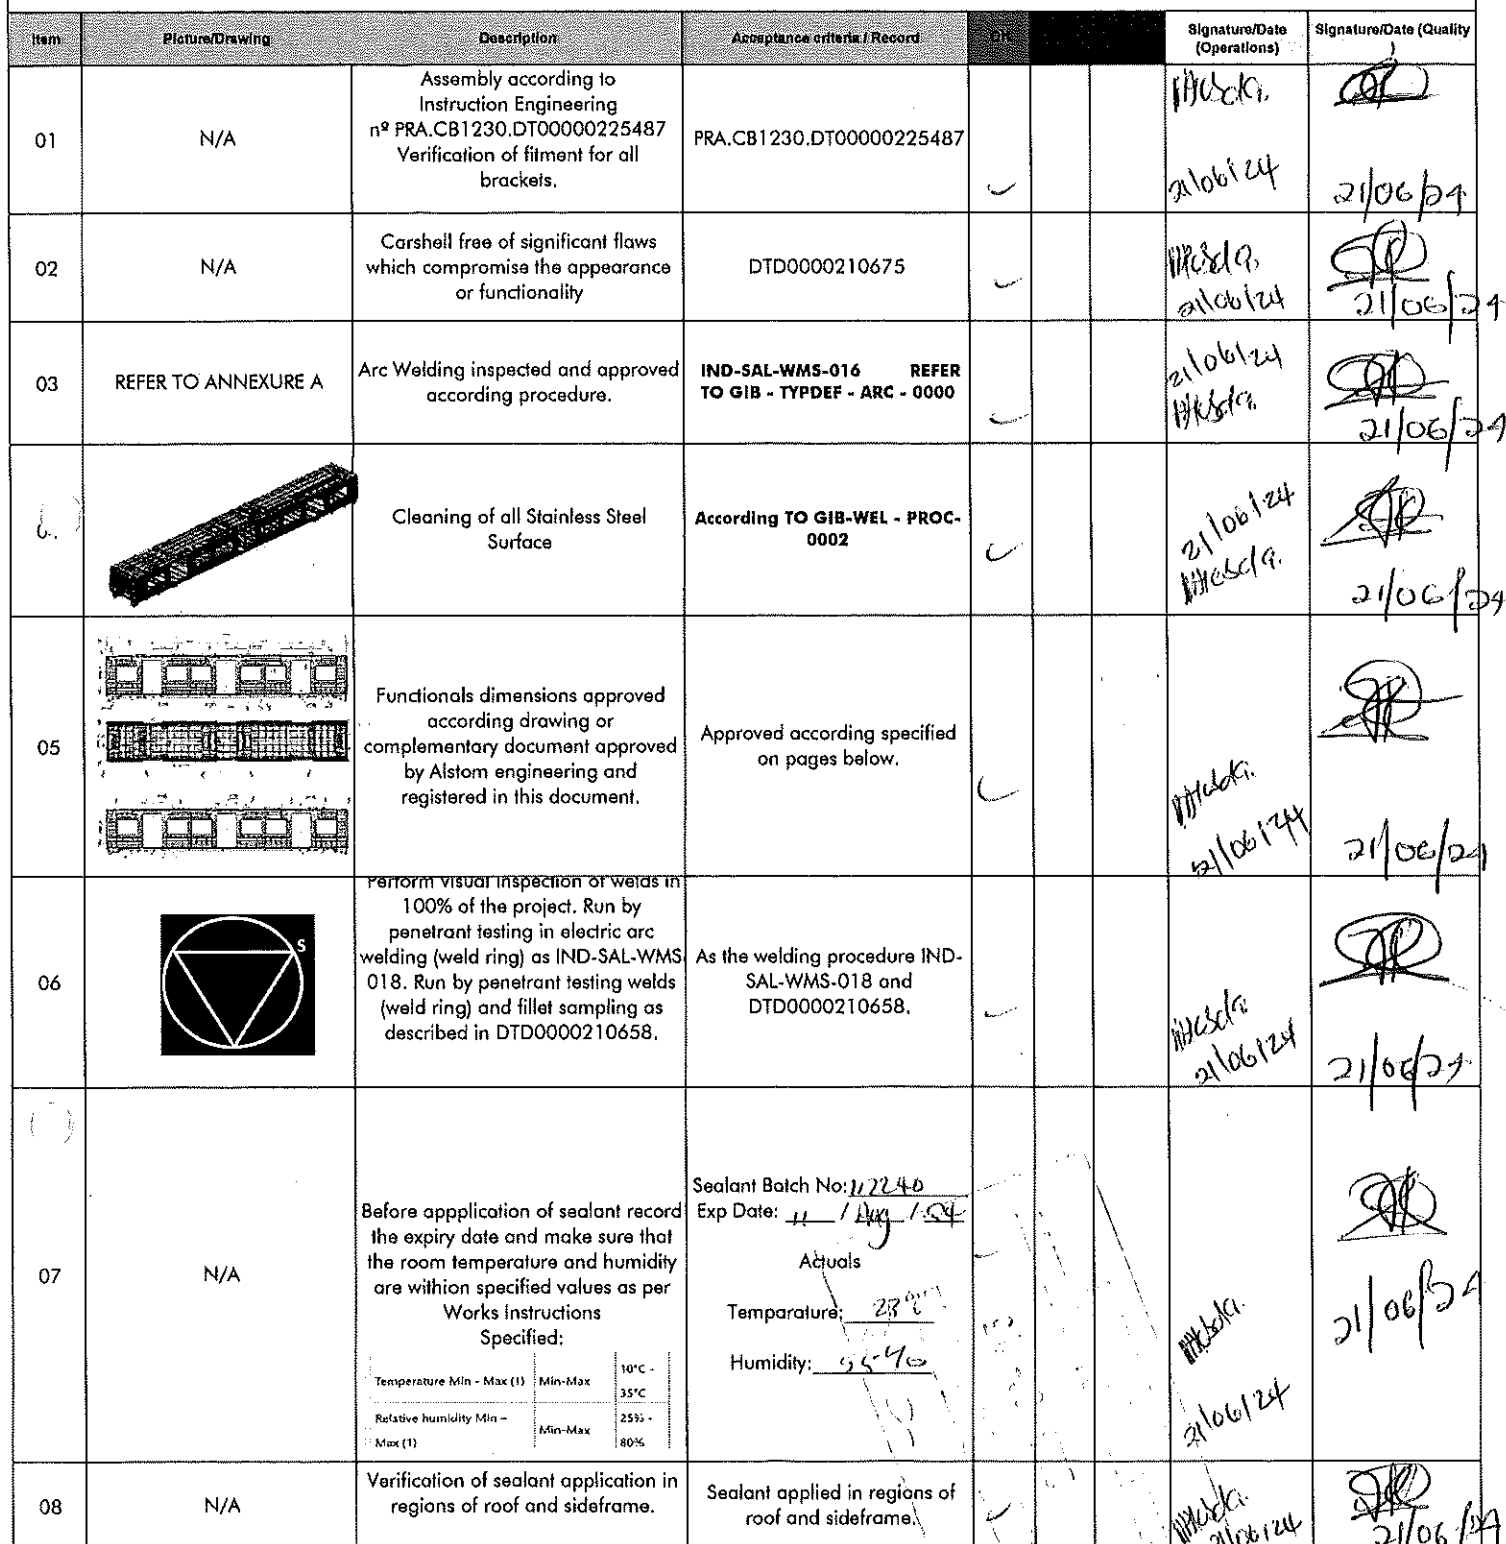 Item Picture/Drawing Description Acceptance criteria / Record OK Signature/Date (Operations) Signature/Date (Quality )
01
N/A
Assembly according to
Instruction Engineering
nº PRA.CB1230.DT00000225487
Verification of fitment for all
brackets.
PRA.CB1230.DT00000225487
21/06/24
21/06/24
02
N/A
Carshell free of significant flaws
which compromise the appearance
or functionality
DTD0000210675
21/06/24
21/06/24
03
REFER TO ANNEXURE A
Arc Welding inspected and approved
according procedure.
IND-SAL-WMS-016 REFER
TO GIB - TYPDEF - ARC - 0000
21/06/24
21/06/24
Cleaning of all Stainless Steel
Surface
According TO GIB-WEL - PROC-
0002
21/06/24
21/06/24
05
Functionals dimensions approved
according drawing or
complementary document approved
by Alstom engineering and
registered in this document.
Approved according specified
on pages below.
21/06/24
21/06/24
06
S
Perform visual inspection of welds in
100% of the project. Run by
penetrant testing in electric arc
welding (weld ring) as IND-SAL-WMS-
018. Run by penetrant testing welds
(weld ring) and fillet sampling as
described in DTD0000210658.
As the welding procedure IND-
SAL-WMS-018 and
DTD0000210658.
21/06/24
21/06/24
07
N/A
Before appplication of sealant record
the expiry date and make sure that
the room temperature and humidity
are withion specified values as per
Works Instructions
Specified:
Temperature Min - Max (1) Min-Max 10°C -
35°C
Relative humidity Min –
Max (1) Min-Max 25% -
80%
Sealant Batch No:
Exp Date: 11 / Aug /
Actuals
Temparature:
Humidity:
21/06/24
21/06/24
08
N/A
Verification of sealant application in
regions of roof and sideframe.
Sealant applied in regions of
roof and sideframe.
21/06/24
21/06/24